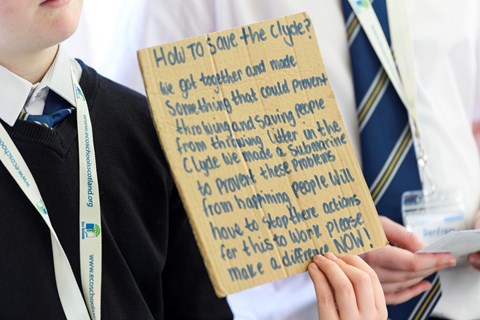 HOW TO Save the Clyde?
We got together and made
something that could prevent
throwing and saving people
from throwing litter in the
Clyde we made a submarine
to prevent these problems
from happning People will
have to stop there actions
for this to work please
make a diffrence NOW!
www.ecoschoolsscotland.org
www.
www.eco